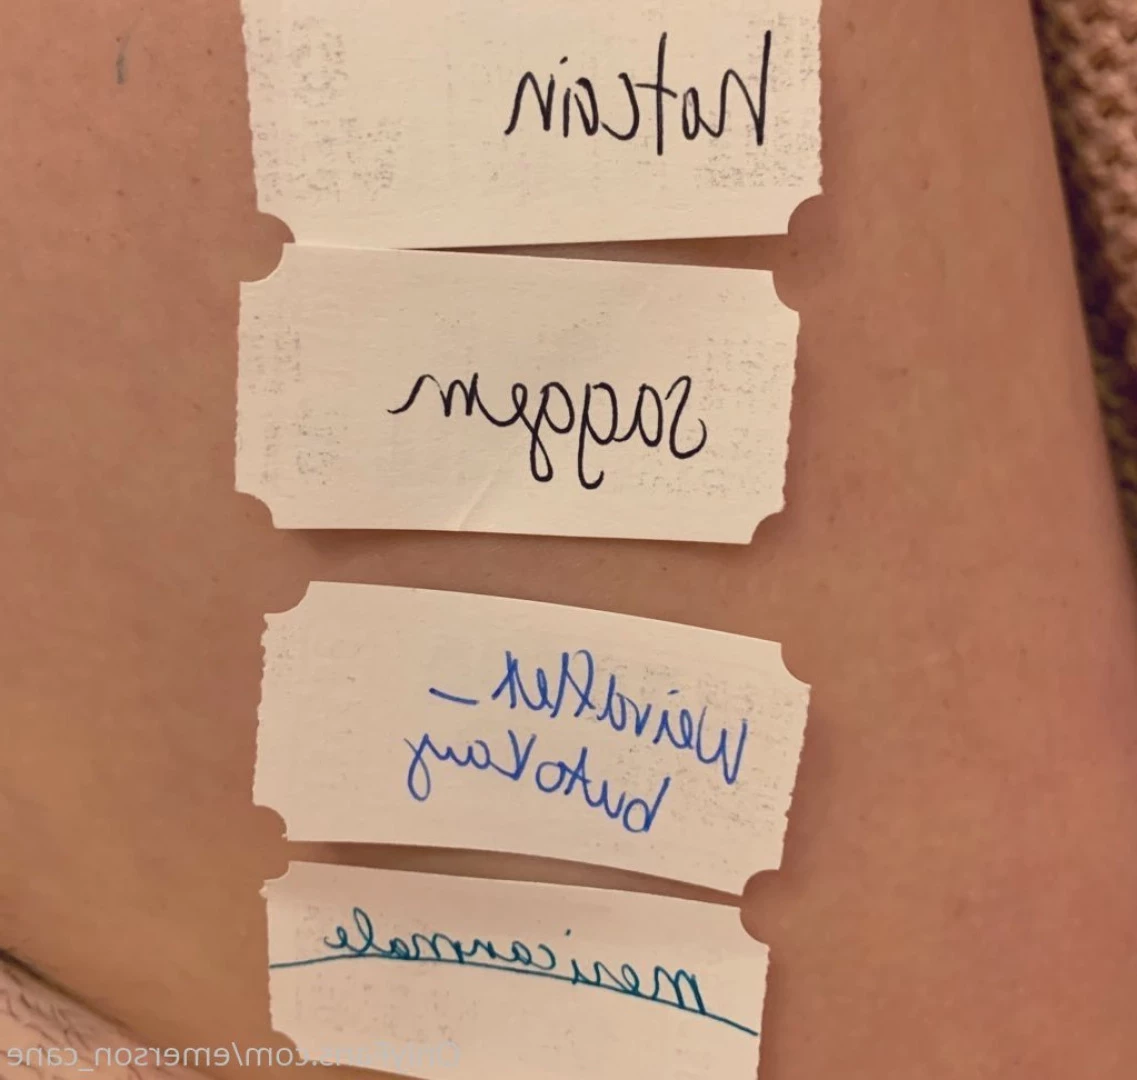 hatcoin
saggem
WeirdAlex_
butoKay
mericanmale
OnlyFans.com/emerson_cane